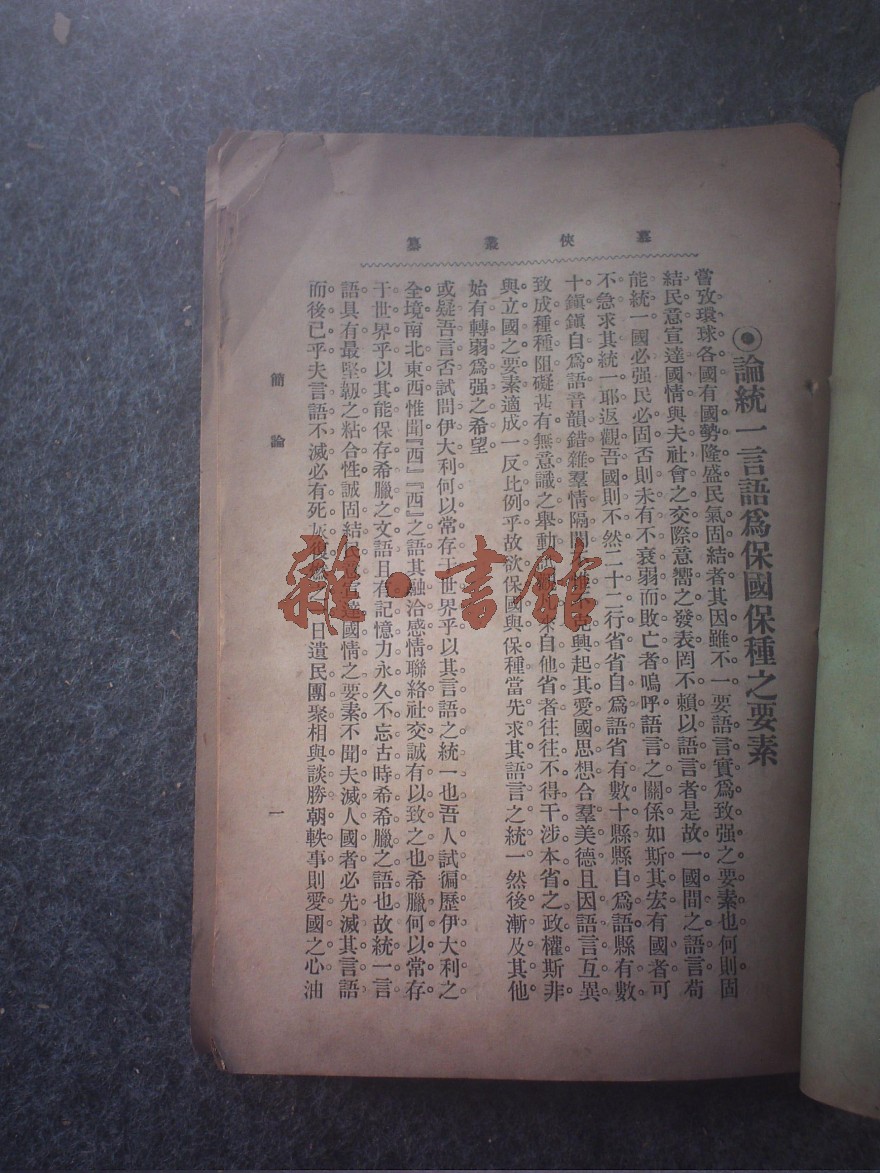 墓俠叢纂
◉論統一言語爲保國保種之要素
嘗攷環球各國有國勢隆盛民氣固結者其因雖不一要語言實爲致强之要素也何則固
結民意宣達國情與夫社會之交際意嚮之發表罔不賴以語言者是故一國間之語言苟
能統一國必强民必固否則未有不衰弱而敗亡者嗚呼語言之關係如斯其宏有國者可
不急求其統一耶返觀吾國則不然二十二行省省自爲語省有數十縣縣自爲語縣有數
十鎭鎭自爲語音韻錯雜羣情隔閡 克興起其愛國思想合羣美德且因語言互異
致成種種阻礙甚有無意識之舉動 來自他省者往往不得干涉本省之政權斯非
與立國之要素適成一反比例乎故欲保國與保種當先求其語言之統一然後漸及其他
始有轉弱爲强之希望
或疑吾言否試問伊大利何以常存于世界乎以其言語之統一也吾人試徧歷伊大利之
全境南北東西惟聞『西』『西』之語其融洽感情聯絡社交誠有以致之也希臘何以常存
于世界乎以其能保存希臘之文語且有記憶力永久不忘古時希希臘之語也故統一言
語具有最堅韌之粘合性誠固結民 達國情之要素不聞夫滅人國者必先滅其言語
而後已乎夫言語不滅必有死灰復 日遺民團聚相與談勝朝軼事則愛國之心油
簡論
一
雜·書館